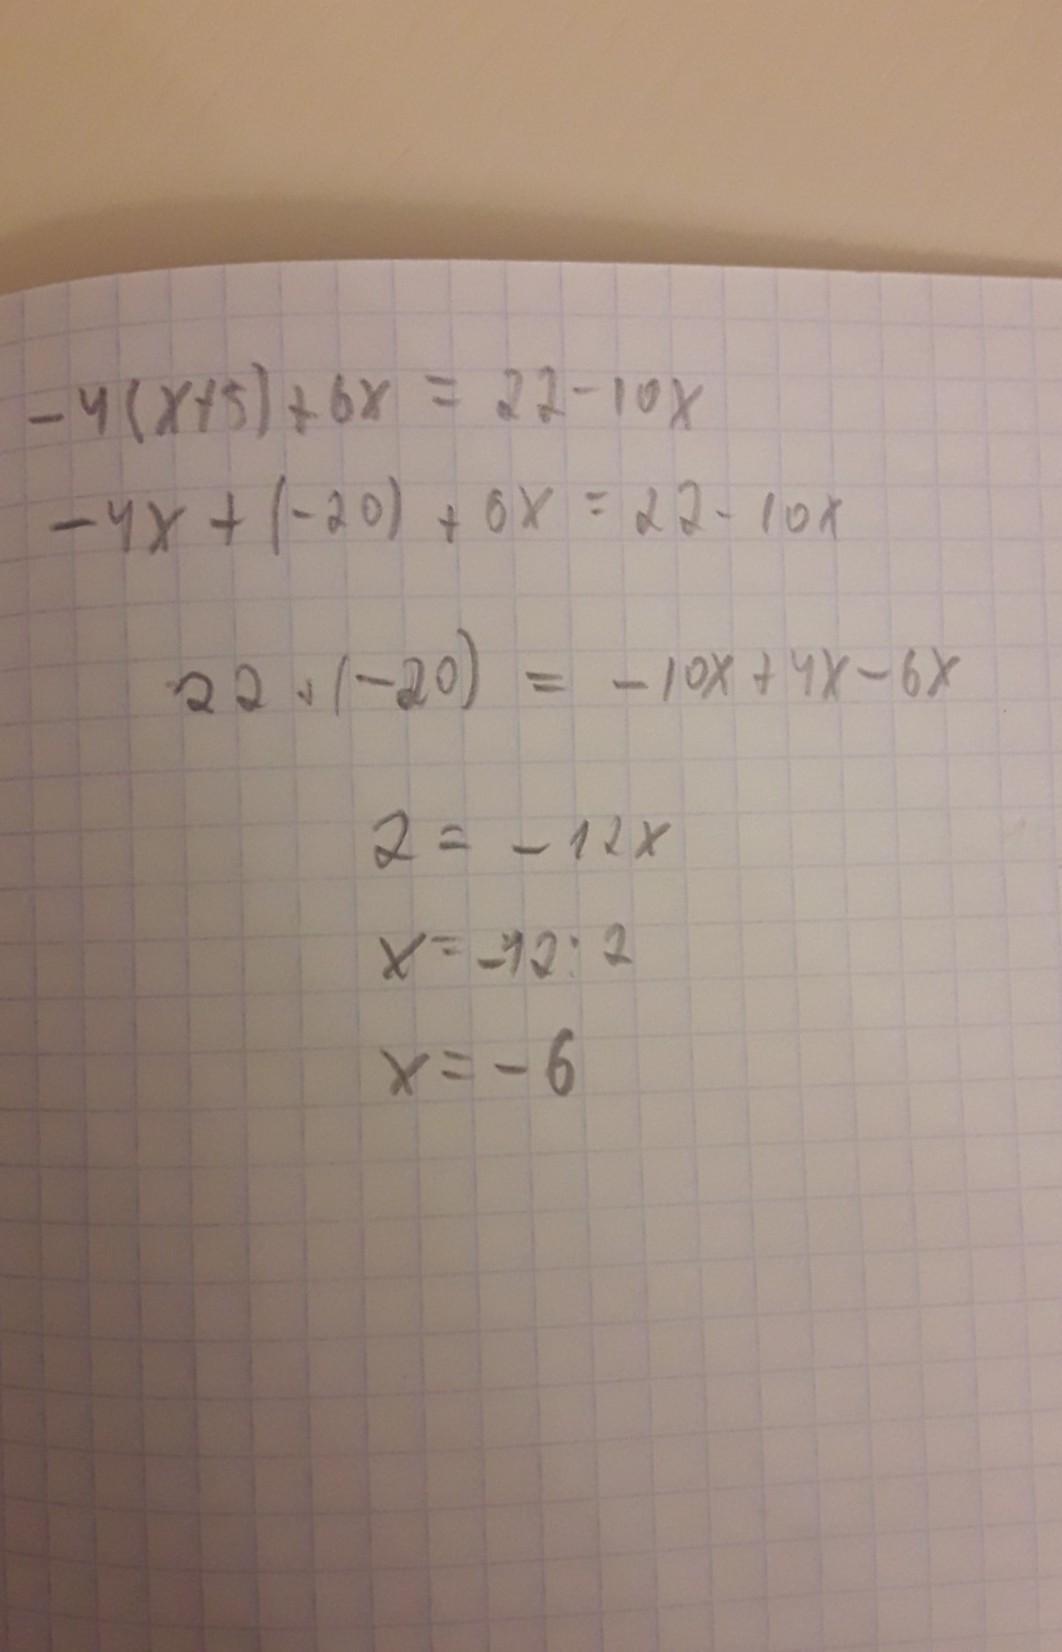 -4(x+5)+6x = 22-10x
-4x + (-20) + 6x = 22- 10x
22 + (-20) = -10x+4x-6x
2 = -12x
x=-12:2
x=-6